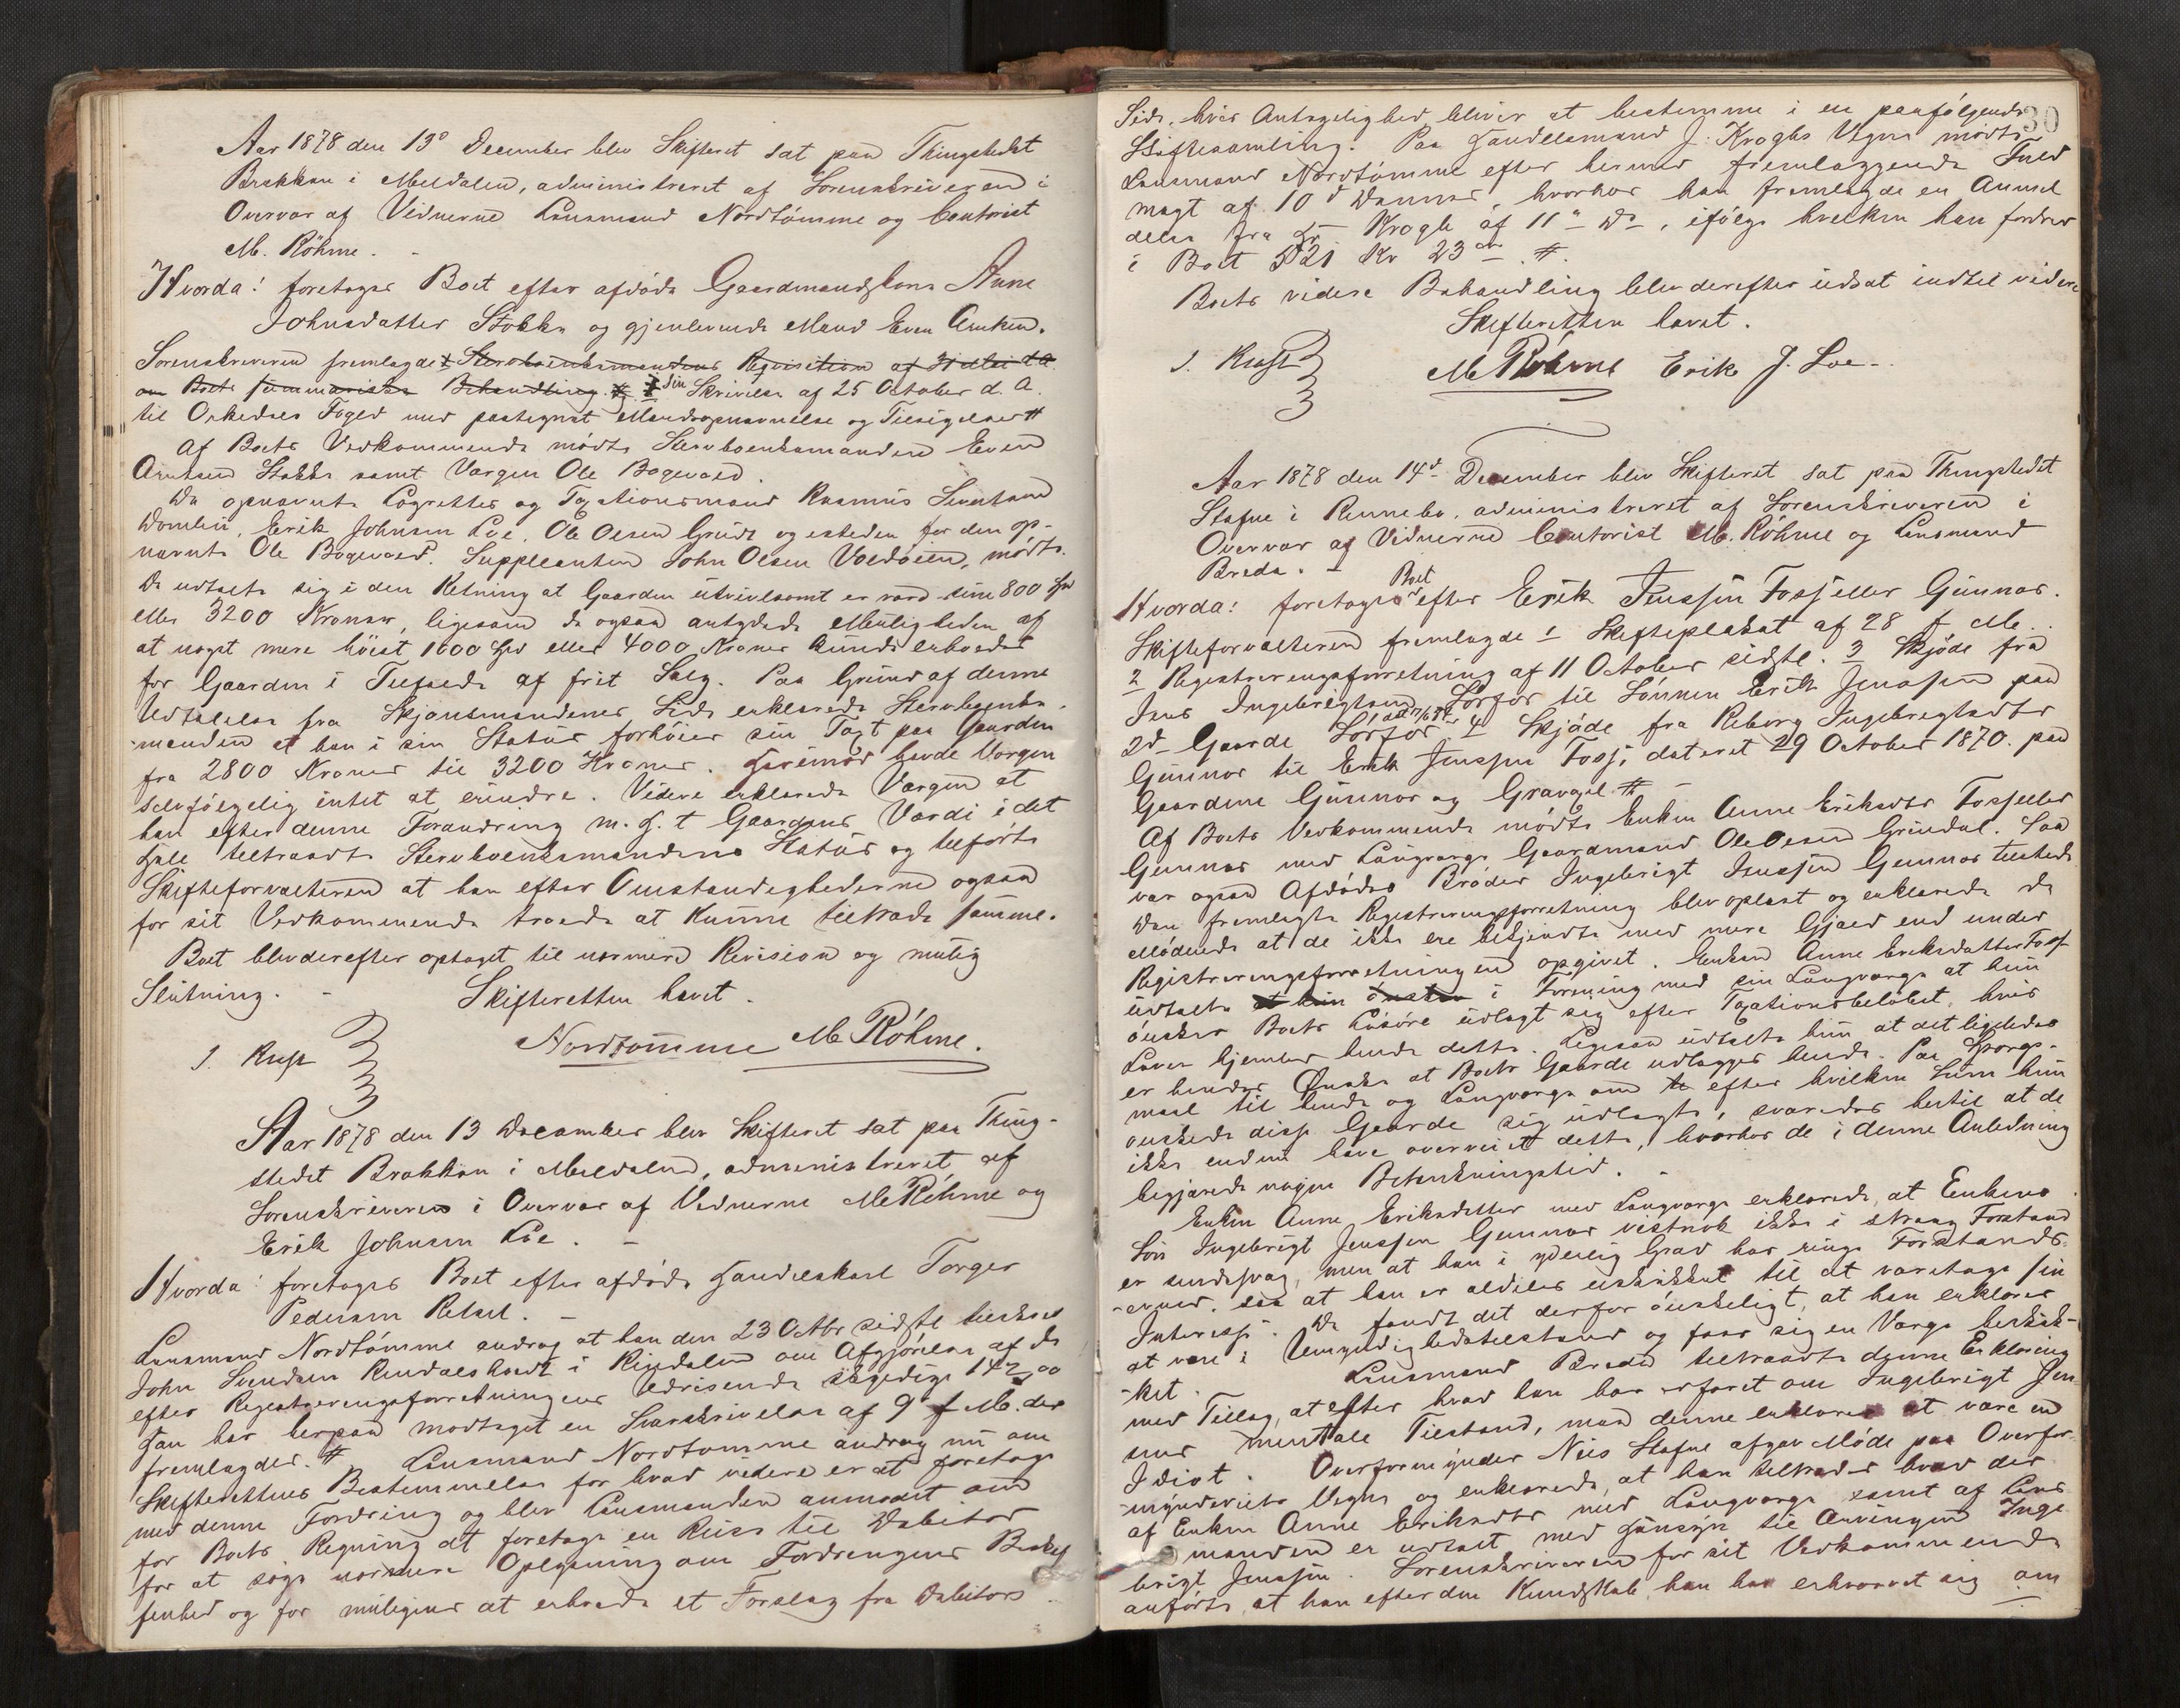 Aar 1878 den 13de December blev Skifteret sat paa Thingstedet
Brækken i Meldalen, administreret af Sorenskriveren i
Overvær af Vidnerne Lensmand Nordtömme og Contorist
M. Röhme.
Hvorda: foretoges Boet efter afdöde Gaardmandskone Anne
Johnsdatter Stokke og gjenlevende Mand Even Arntsen.
Sorenskriveren fremlagde 1 Stervboenkemandens Reqvisition af
om Boets summariske Behandling # 1 sin Skrivelse af 25 October d. A.
til Orkedals Foged med paategnet Mandsopnævnelse og Tilsigelser #
Af Boets Vedkommende mödte Stervboenkemanden Even
Arntsen Stokke samt Værgen Ole Bogevold.
De opnævnte Lagrettes og Taxationsmænd Rasmus Sivertsen
Domlin, Erik Johnsen Loe, Ole Olsen Grude og isteden for den op-
nævnte Ole Bogevold. Suppleanten John Olsen Voldöien, mödte.
De udtalte sig i den Retning at Gaarden utvivlsomt er værd sine 800 Spd
eller 3200 Kroner, ligesom de ogsaa antydede Muligheden af
at noget mere höist 1000 Spd eller 4000 Kroner kunde erholdes
for Gaarden i Tilfælde af frit Salg. Paa Grund af denne
Udtalelse fra Skjönsmændenes Side erklærede Stervboenke-
manden at han i sin Status forhöier sin Taxt paa Gaarden
fra 2800 Kroner til 3200 Kroner. Herimod havde Værgen
selvfölgelig intet at erindre. Videre erklærede Værgen at
han efter denne Forandring m. H. t Gaardens Værdi i det
Hele tiltraadte Stervboenkemandens Status og tilförte
Skifteforvalteren at han efter Omstændighederne ogsaa
for sit Vedkommende troede at kunne tiltræde samme.
Boet blev derefter optaget til nærmere Revision og mulig
Slutning. - Skifteretten hævet.
J. Rusp Nordtömme M Röhme.
Aar 1878 den 13 December blev Skifteret sat paa Thing-
stedet Brækken i Meldalen, administreret af
Sorenskriveren i Overvær af Vidnerne M Röhme og
Erik Johnsen Loe. -
Hvorda: foretoges Boet efter afdöde Handelskarl Torger
Pedersen Retsel. -
Lensmand Nordtömme androg at han den 23 Octbr sidstl tilskrev
John Svendsen Rindalsholt i Rindalen om Afgjörelse af de
efter Registreringsforretningens Udvisende skyldige 142,00
Han har herpaa modtaget en Svarskrivelse af 9 f. M. der
fremlagdes. # Lensmand Nordtömme androg nu om
Skifterettens Bestemmelse for hvad videre er at foretage
med denne Fordring og blev Lensmanden anmodet om
for Boets Regning at foretage en Reise til Debitor
for at söge nærmere Oplysning om Fordringens Beskaf
fenhed og for muligens at erhverve et Forslag fra Debitors
30
Side, hvis Antagelighed bliver at bestemme i en paafölgende
Skiftesamling. Paa Handelsmand J. Kroghs Vegne mödte
Lensmand Nordtömme efter hermed fremlæggende Fuld
magt af 10d Dennes, hvorhos han fremlagde en Anmel
delse fra Hr Krogh af 11te Ds, ifölge hvilken han fordrer
i Boet 521 Kr 23 öre. #.
Boets videre Behandling blev derefter udsat indtil videre
Skifteretten hævet.
J. Rusp M Röhme Erik J. Loe.
Aar 1878 den 14d December blev Skifteret sat paa Thingstedet
Stafne i Rennebo, administreret af Sorenskriveren i
Overvær af Vidnerne Contorist M. Röhme og Lensmand
Breda. -
Hvorda: foretoges Boet efter Erik Jenssen Foss eller Gunnas.
Skifteforvalteren fremlagde 1 Skifteplakat af 28 f. M.
2 Registreringsforretning af 11 October sidstl. 3 Skjöde fra
Jens Ingebrigtsen Hörfor til Sönnen Erik Jenssen paa
2d Gaarde Hörfor 4 Skjöde fra Reborg Ingebrigtsdtr
Gunnas til Erik Jenssen Foss, dateret 29 October 1870. paa
Gaardene Gunnas og Gravgil #
Af Boets Vedkommende mödte Enken Anne Eriksdtr Foss eller
Gunnas med Laugværge Gaardmand Ole Olsen Grindal. Saa
var ogsaa Afdödes Broder Ingebrigt Jenssen Gunnas tilstede
Den fremlagte Registreringsforretning blev oplæst og erklærede de
Mödende at de ikke ere bekjendte med mere Gjæld end under
Registreringsforretningen opgivet. Enken Anne Eriksdatter Foss
udtalte at hun önsker i Forening med sin Laugværge at hun
önsker Boets Lösöre udlagt sig efter Taxationsbelöbet, hvis
Loven hjemler hende dette. Ligesaa udtalte hun at det ligeledes
er hendes Önske at Boets Gaarde udlægges hende. Paa Spörgs-
maal til hende og Laugværge om efter hvilken Sum hun
önskede disse Gaarde sig udlagte, svaredes hertil at de
ikke endnu have overveiet dette, hvorhos de i denne Anledning
begjærede nogen Betænkningstid. -
Enken Anne Eriksdatter med Laugværge erklærede, at Enkens
Sön Ingebrigt Jenssen Gunnas vistnok ikke i streng Forstand
er sindssvag, men at han i yderlig Grad har ringe Forstands-
evner, saa at han er aldeles uskikket til at varetage sin
Interesse. De fandt det derfor önskeligt, at han erklæres
at være i Umyndighedstilstand og faar sig en Værge beskik-
ket. Lensmand Breda tiltraadte denne Erklæring
med Tillæg, at efter hvad han har erfaret om Ingebrigt Jen-
sens mentale Tilstand, maa denne erklæres at være en
Idiot. Overformynder Nils Stafne afgav Möde paa Overfor-
mynderiets Vegne og erklærede, at han tiltræder hvad der
af Enken Anne Eriksdtr med Laugværge samt af Lens
manden er udtalt med Hensyn til Arvingen Inge
brigt Jenssen. Sorenskriveren for sit Vedkommende
anförte, at han efter den Kundskab, han har erhvervet sig om